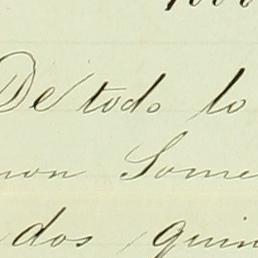 De todo lo
non Some
dos quin